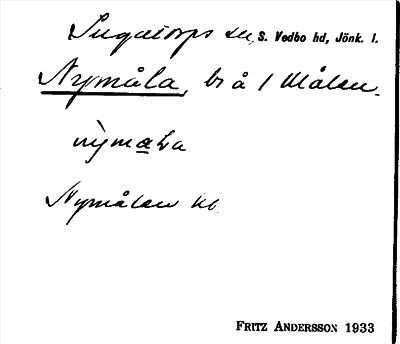 Ingatorps sn, S. Vedbo hd, Jönk. l.
Nymåla, br å / Målen.
nỳmaLa
Nymålen kb
FRITZ ANDERSSON 1933